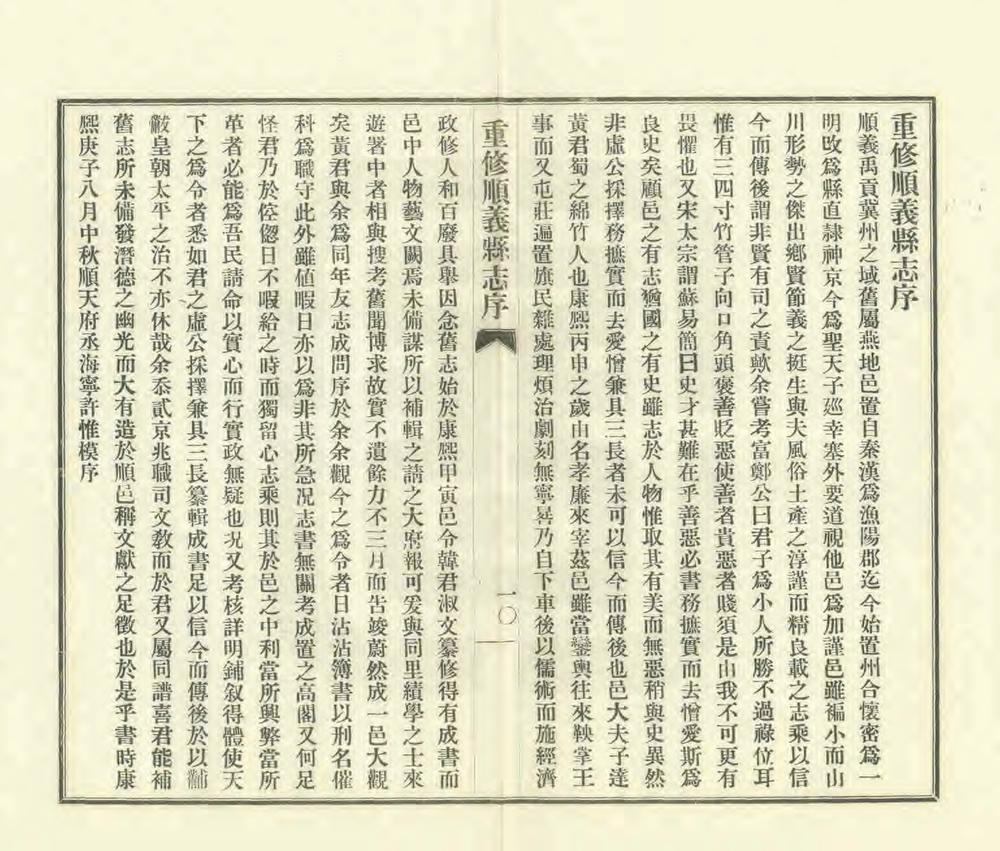 重修順義縣志序
順義禹貢冀州之域舊屬燕地邑置自秦漢爲漁陽郡迄今始置州合懷密爲一
明改爲縣直隸神京今爲聖天子廵幸塞外要道視他邑爲加謹邑雖褊小而山
川形勢之傑出鄉賢節義之挺生與夫風俗土產之淳謹而精良載之志乘以信
今而傳後謂非賢有司之責歟余嘗考富鄭公曰君子爲小人所勝不過祿位耳
惟有三四寸竹管子向口角頭褒善貶惡使善者貴惡者賤須是由我不可更有
畏懼也又宋太宗謂蘇易簡曰史才甚難在乎善惡必書務摭實而去憎愛斯爲
良史矣顧邑之有志猶國之有史雖志於人物惟取其有美而無惡稍與史異然
非虛公採擇務摭實而去愛憎兼具三長者未可以信今而傳後也邑大夫子達
黃君蜀之綿竹人也康熙丙申之歲由名孝廉來宰茲邑雖當鑾輿往來鞅掌王
事而又屯莊遍置旗民雜處理煩治劇刻無寧晷乃自下車後以儒術而施經濟
重修順義縣志序
一〇
政修人和百廢具舉因念舊志始於康熙甲寅邑令韓君淑文纂修得有成書而
邑中人物藝文闕焉未備謀所以補輯之請之大府報可爰與同里績學之士來
遊署中者相與搜考舊聞博求故實不遺餘力不三月而告竣蔚然成一邑大觀
矣黃君與余爲同年友志成問序於余余觀今之爲令者日沾沾簿書以刑名催
科爲職守此外雖値暇日亦以爲非其所急况志書無關考成置之高閣又何足
怪君乃於倥偬日不暇給之時而獨留心志乘則其於邑之中利當所興弊當所
革者必能爲吾民請命以實心而行實政無疑也况又考核詳明鋪叙得體使天
下之爲令者悉如君之虛公採擇兼具三長纂輯成書足以信今而傳後於以黼
黻皇朝太平之治不亦休哉余忝貳京兆職司文敎而於君又屬同譜喜君能補
舊志所未備發潛德之幽光而大有造於順邑稱文獻之足徵也於是乎書時康
熙庚子八月中秋順天府丞海寧許惟模序